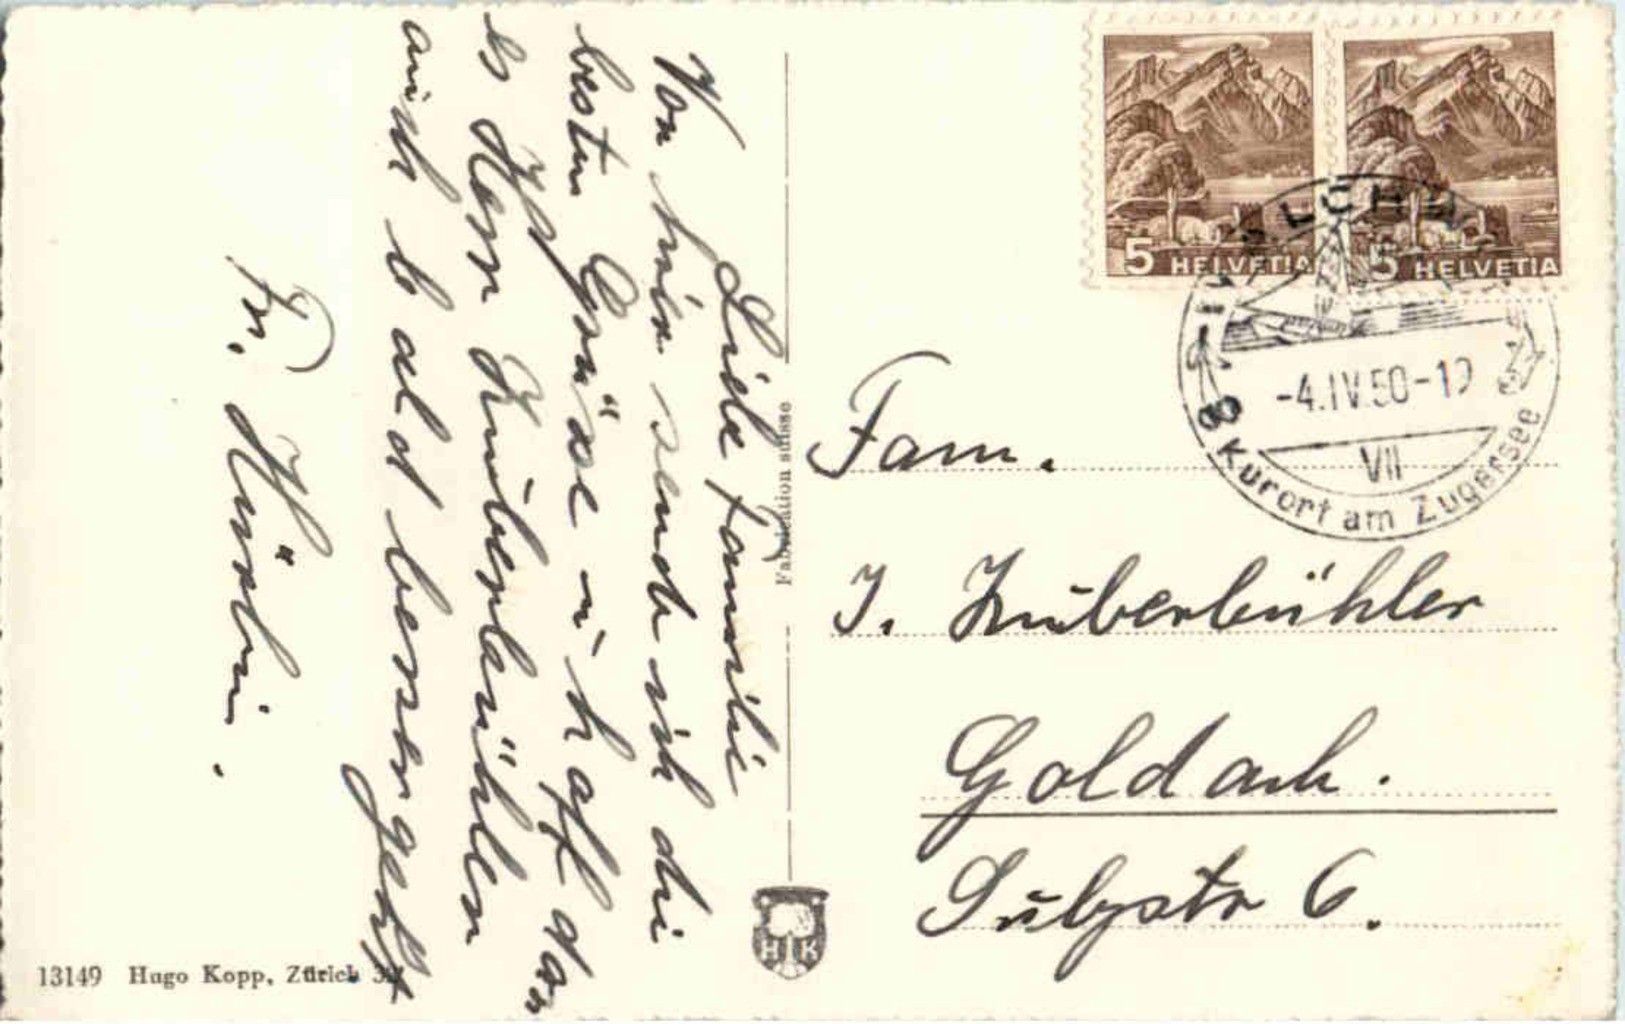 Liebe Familie
Von hier sende ich die
besten Grüsse u. hoff das
es Herr Zuberbühler
auch bald besser geht
Fr. Hürlin.
Fabrication suisse
HK
13149 Hugo Kopp, Zürich
5 HELVETIA
5 HELVETIA
-4.IV.50-
VII
Kurort am Zugersee
Fam.
J. Zuberbühler
Goldach.
Sulzstr 6.